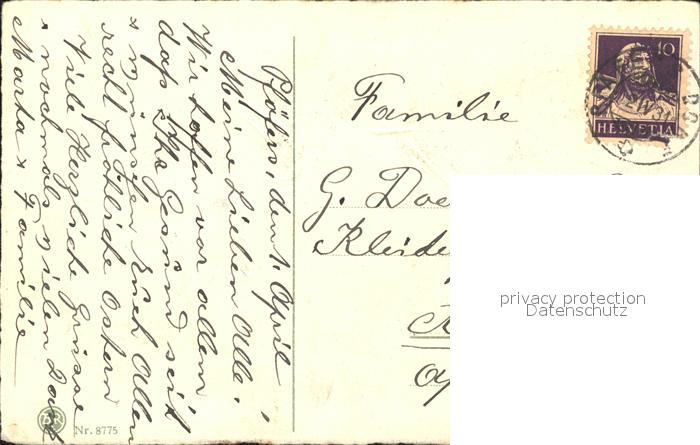 Pfäfers, den 1. April
Meine Lieben Alle!
Wir hoffen vor allem
dass Ihr Gesund seit
& wünschen Euch Allen
recht fröhliche Ostern
Viele Herzliche Grüsse
& nochmals vielen Dank
Marta & Familie
Familie
G.
10
HELVETIA
privacy protection
Datenschutz
BR
Nr. 8775